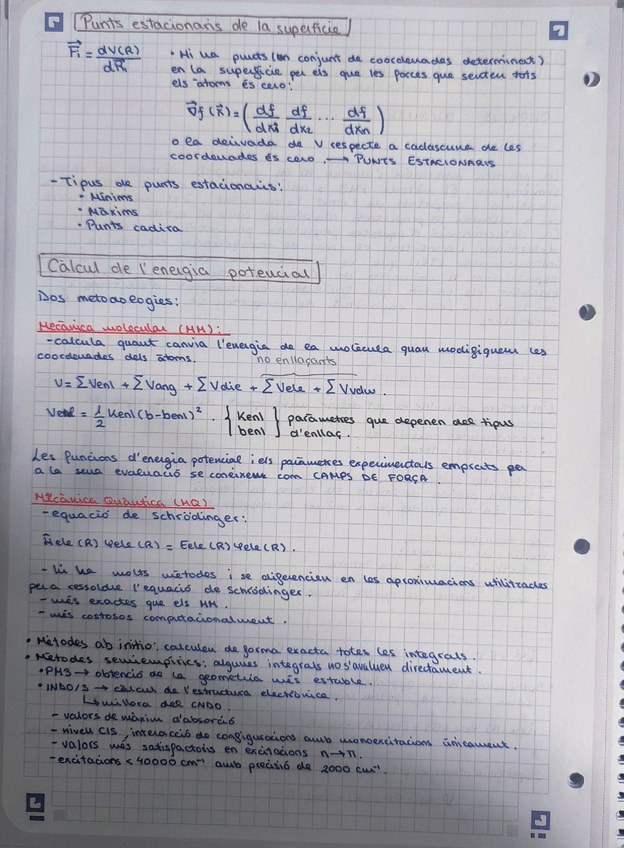 Punts estacionaris de la superfície
F⃗i = dV(R) / dR⃗i
• Hi ha punts (un conjunt de coordenades determinat)
en la superfície per els que les forces que senten tots
els àtoms és cero:
∇⃗f(x⃗) = ( df/dx1 df/dx2 ... df/dxn )
o la derivada de V respecte a cadascuna de les
coordenades és cero. → PUNTS ESTACIONARIS
- Tipus de punts estacionaris:
• Mínims
• Màxims
• Punts cadira
Càlcul de l'energia potencial
Dos metodologies:
Mecànica molecular (MM):
- calcula quant canvia l'energia de la molècula quan modifiquem les
coordenades dels àtoms.
no enllaçants
V = ΣVenl + ΣVang + ΣVdie + ΣVele + ΣVvdw.
Venl = 1/2 Kenl (b-benl)². { Kenl benl } paràmetres que depenen del tipus
d'enllaç.
Les funcions d'energia potencial i els paràmetres experimentals emprats per
a la seua evaluació se coneixem com CAMPS DE FORÇA.
Mecànica Quàntica (MQ)
- equació de Schrödinger:
Ĥele (R) Ψele (R) = Eele (R) Ψele (R).
- Hi ha molts mètodes i se diferencien en les aproximacions utilitzades
per a resoldre l'equació de Schrödinger.
- més exactes que els MM.
- més costosos computacionalment.
• Mètodes ab initio: calculen de forma exacta totes les integrals.
• Mètodes semiempírics: algunes integrals no s'avaluen directament.
• PM3 → obtenció de la geometria més estable.
• INDO/S → càlculs de l'estructura electrònica.
↳ millora del CNDO.
- valors de màxim d'absorció
- nivell CIS, interacció de configuracions amb monoexcitacions únicament.
- valors més satisfactoris en excitacions n→π.
- excitacions < 40000 cm⁻¹ amb precisió de 2000 cm⁻¹.